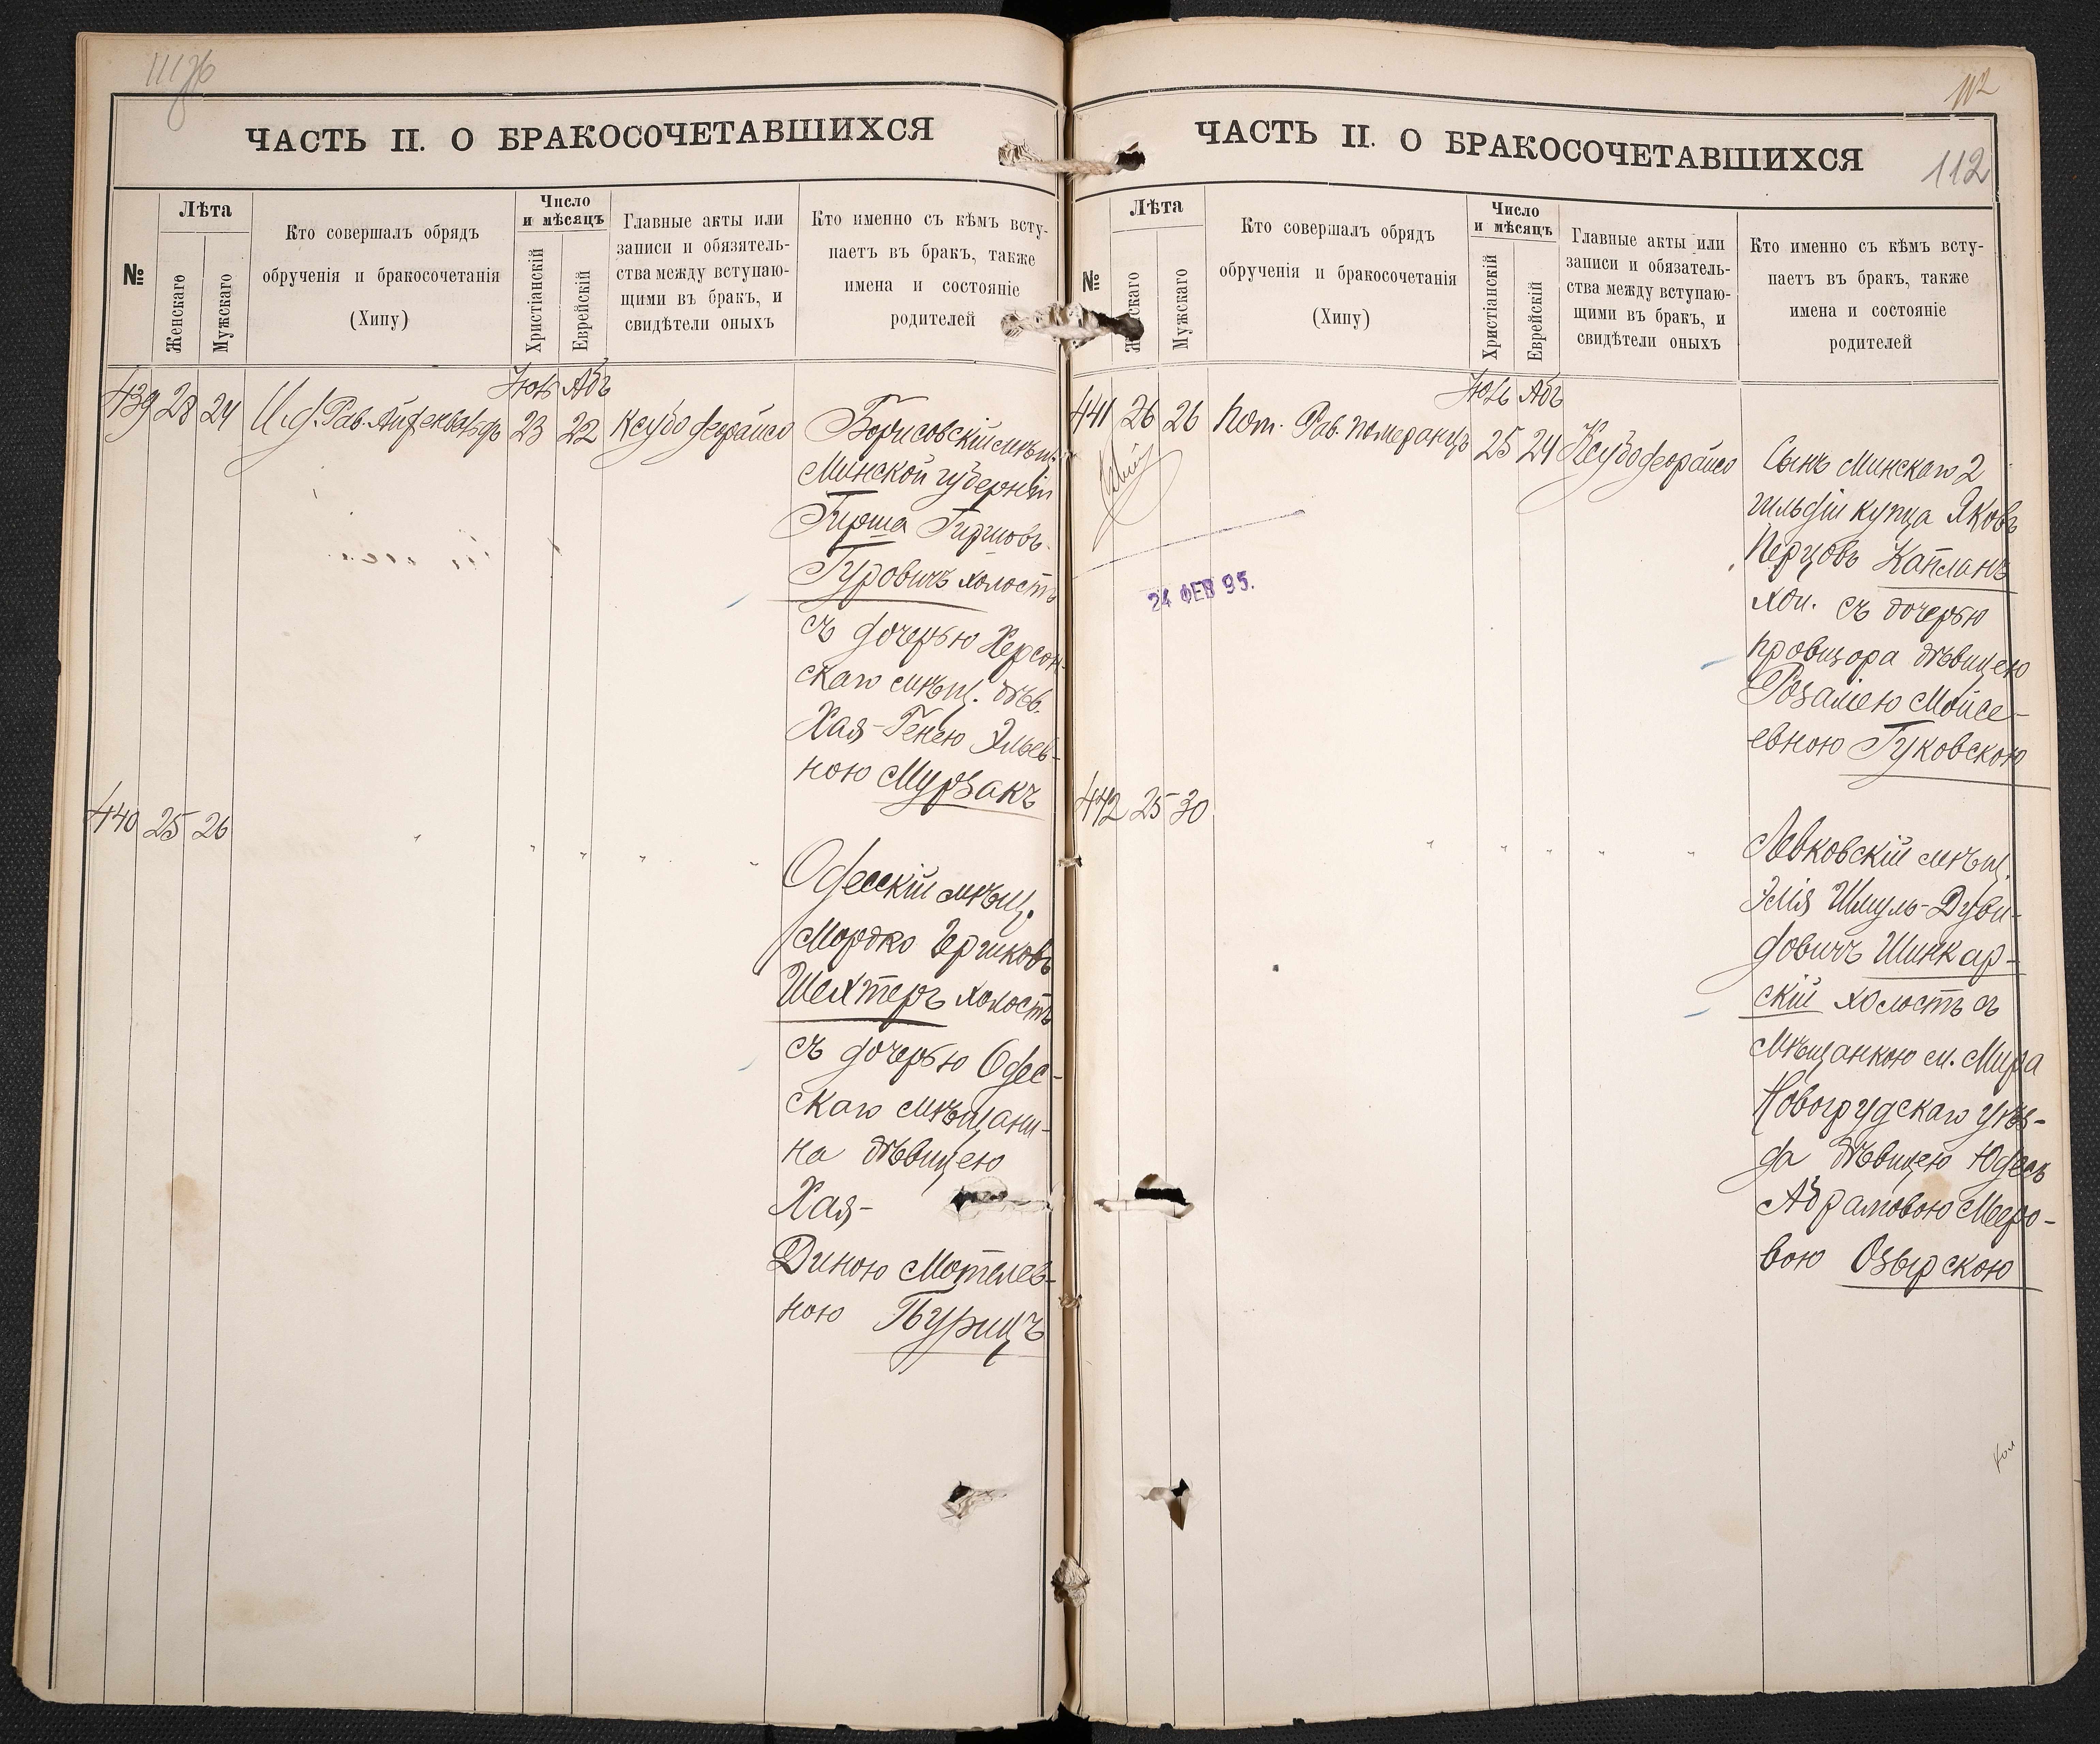 111об
ЧАСТЬ II. О БРАКОСОЧЕТАВШИХСЯ
№
Лѣта
Женскаго
Мужскаго
Кто совершалъ обрядъ
обрученія и бракосочетанія
(Хипу)
Число
и мѣсяцъ
Христіанскій
Еврейскій
Главные акты или
записи и обязятель-
ства между вступаю-
щими въ бракъ, и
свидѣтели оныхъ
Кто именно съ кѣмъ всту-
паетъ въ бракъ, также
имена и состояніе
родителей
Іюль Абъ
439 28 24 И.д. Рав. 23 22 Ксубо
Борисовскій мѣщ.
Минской губерніи
Гирша Гиршовъ
Гуровичъ холостъ
съ дочерью Херсон-
скаго мѣщ. дѣв.
Хая-Генею Эльев-
ною Мурзакъ
440 25 26 " " " " "
Одесскій мѣщ.
Мордко Берковъ
Шехтеръ холостъ
съ дочерью Одес-
скаго мѣщани-
на дѣвицею
Хая-
Диною Мотелев-
ною Гурицъ
112
ЧАСТЬ II. О БРАКОСОЧЕТАВШИХСЯ
112
№
Лѣта
Женскаго
Мужскаго
Кто совершалъ обрядъ
обрученія и бракосочетанія
(Хипу)
Число
и мѣсяцъ
Христіанскій
Еврейскій
Главные акты или
записи и обязатель-
ства между вступаю-
щими въ бракъ, и
свидѣтели оныхъ
Кто именно съ кѣмъ всту-
паетъ въ бракъ, также
имена и состояніе
родителей
Іюль Абъ
441 26 26 Пом. Рав. Померанцъ 25 24 Ксубо
Сынъ Минскаго 2
гильдіи купца Яковъ
Перцовъ Капланъ
хол. съ дочерью
провизора дѣвицею
Розаліею Мойсе-
евною Гуковскою
24 ФЕВ 95.
442 25 30 " " " " "
Левковскій мѣщ.
Элія Шмуль-Дуви-
довичъ Шинкар-
скій холостъ съ
мѣщанкою м. Мира
Новогрудскаго уѣз-
да дѣвицею Юдесъ
Абрамовою Мееро-
вою Озырскою